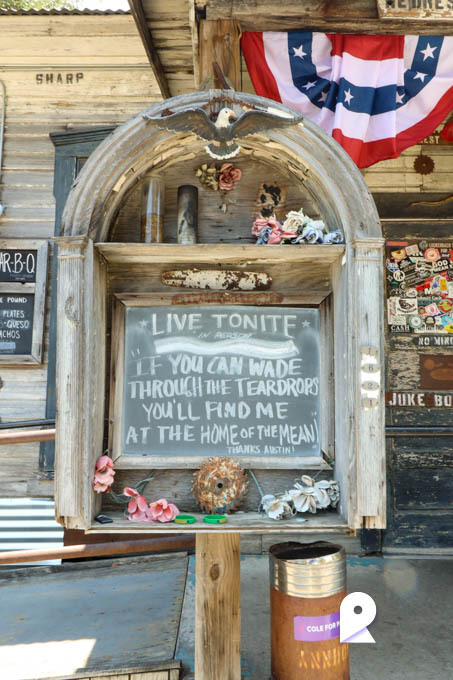 EDNES
SHARP
AR-B-Q
POUND
PLATES
-QUESO
ACHOS
★ LIVE TONITE ★
IN PERSON
"IF YOU CAN WADE
THROUGH THE TEARDROPS
YOU'LL FIND ME
AT THE HOME OF THE MEAN!"
THANKS AUSTIN!
CASH
NO MIN
JUKE BO
COLE FOR
ANNH